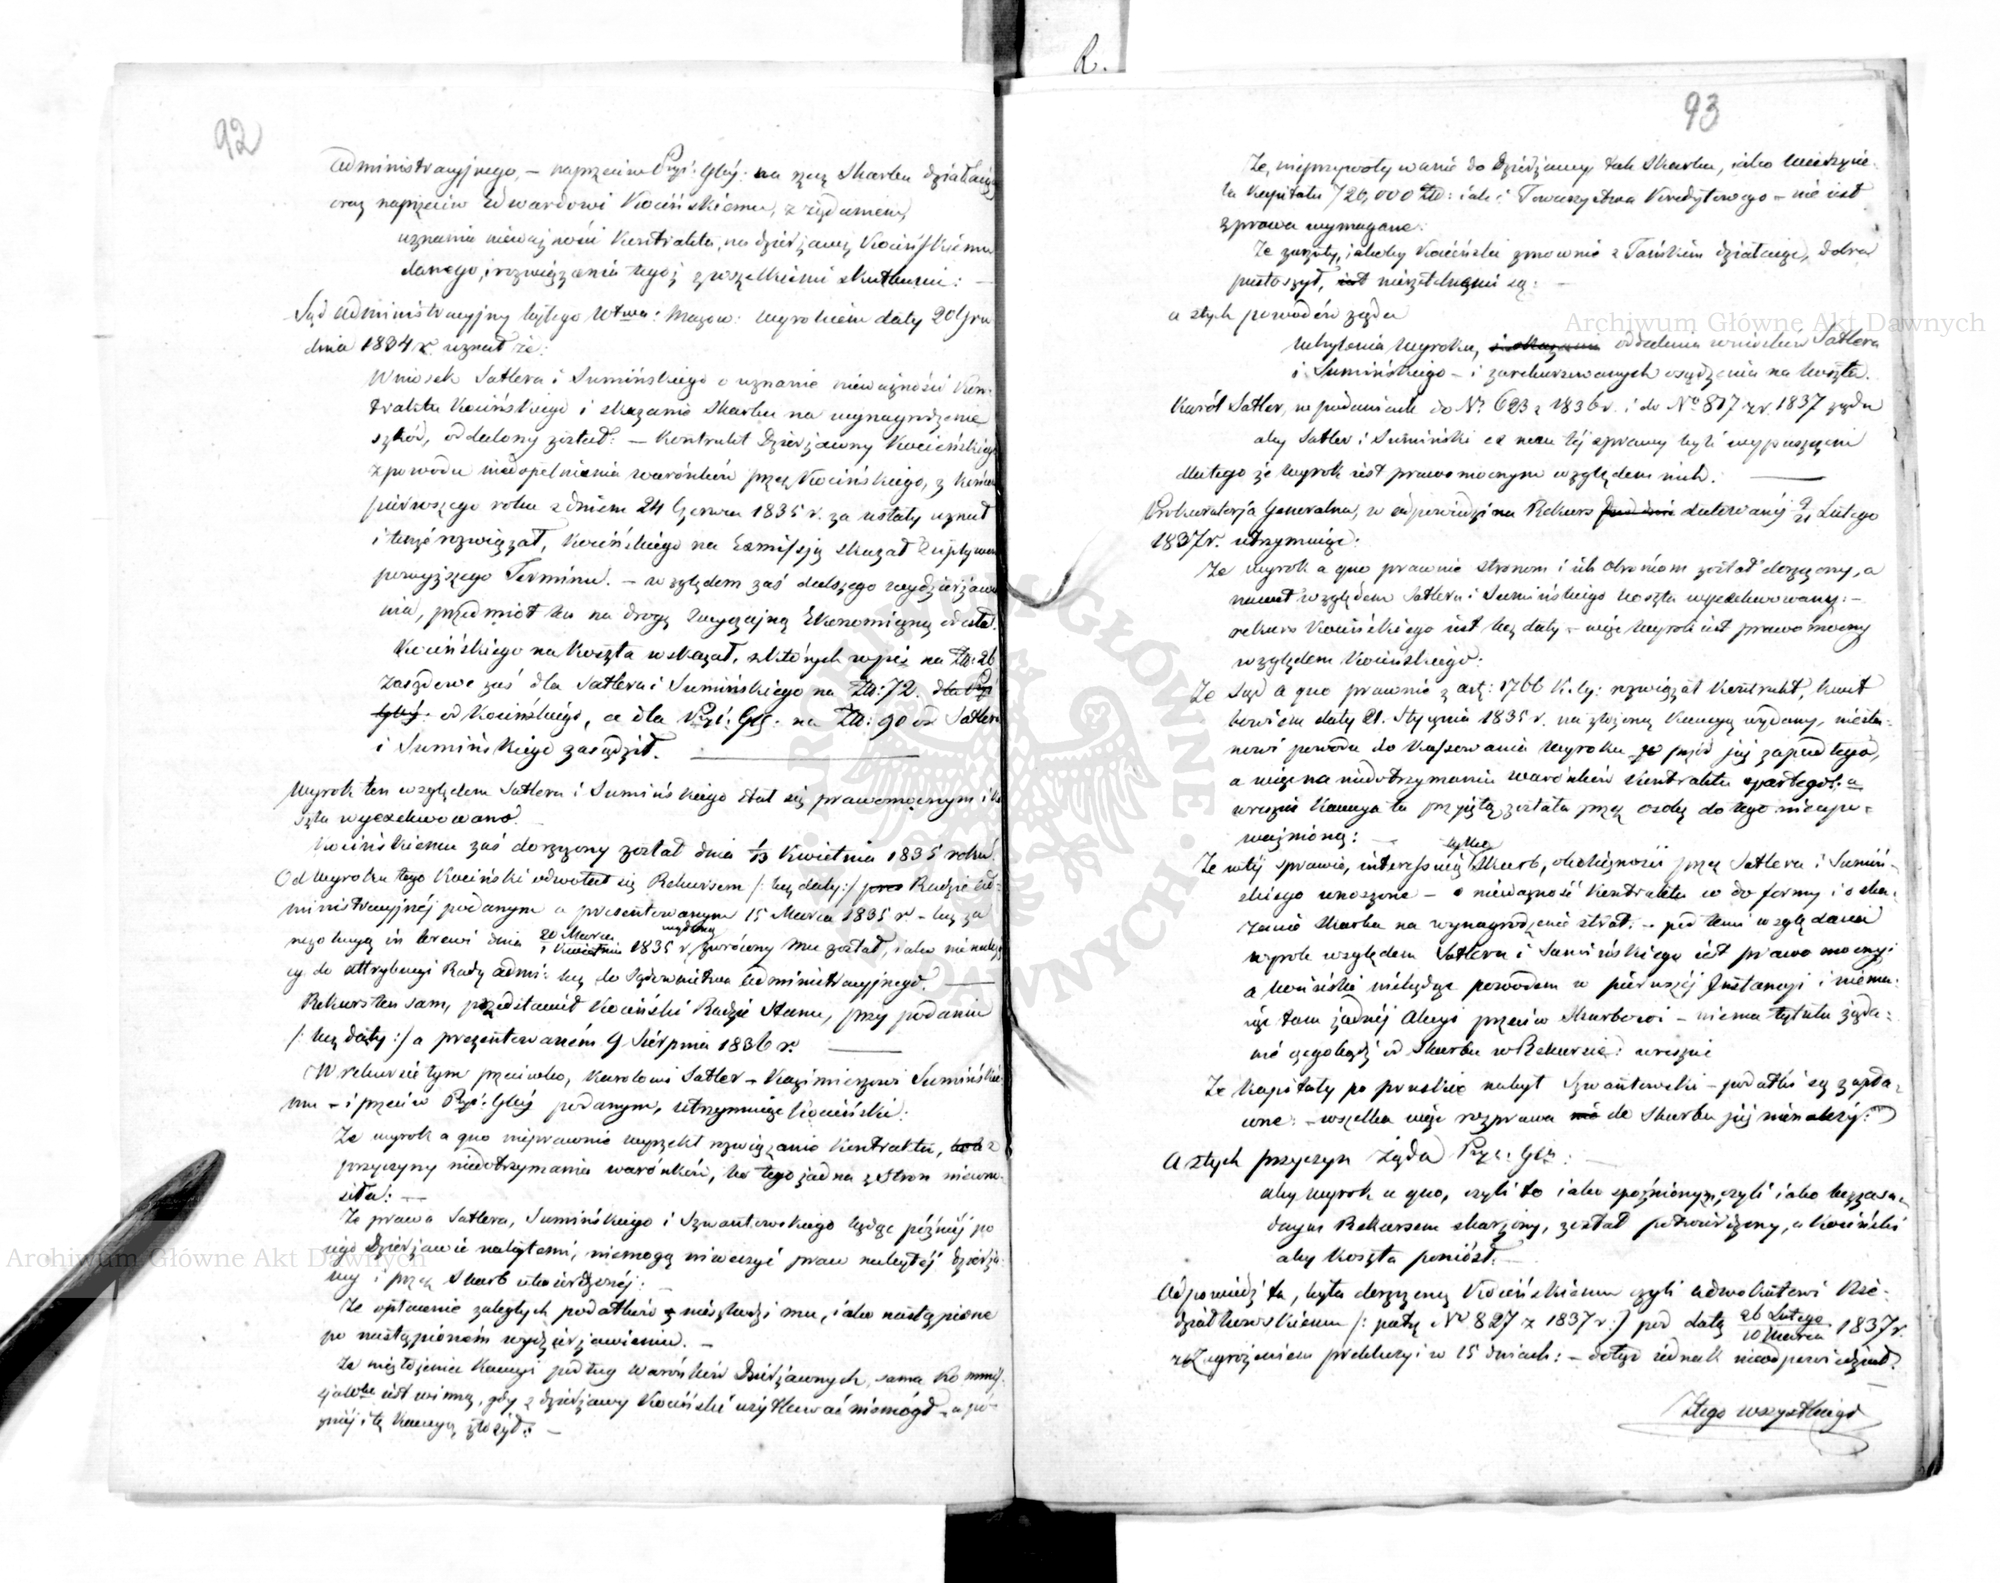 R.
92
administracyjnego, – naprzeciw Prs: Glnej: na rzecz Skarbu działającej
oraz naprzeciw Edwardowi Kocińskiemu, z żądaniem
uznania nieważności Kontraktu, na dzierżawę Kocińskiemu
danego, i rozwiązania tegoż z wszelkiemi skutkami: –
Sąd administracyjny byłego Wtwa: Mazow: wyrokiem daty 20 Gru
dnia 1834 r. uznał że:
Wniosek Satlera i Sumińskiego o uznanie nieważności Kon-
traktu Kocińskiego i skazanie Skarbu na wynagrodzenie
szkód, oddalony został: – Kontrakt Dzierżawny Kocińskiego
z powodu niedopełnienia warónków przez Kocińskiego, z końcem
pierwszego roku z dniem 24 Czerwca 1835 r. za ustały uznał
i tenże rozwiązał, Kocińskiego na Exmissją skazał z upływem
powyższego Terminu. – względem zaś dalszego wydzierżawie
nia, przedmiot ten na drogę zwyczajną Ekonomiczną odesłał.
Kocińskiego na koszta wskazał, z których wpis na Złp: 26
zasądzone zaś dla Satlera i Sumińskiego na Złp: 72. dla Prs
Glnej: od Kocińskiego, a dla Prs: Gln: na Złp: 90 od Satlera
i Sumińskiego zasądził.
Wyrok ten względem Satlera i Sumińskiego stał się prawomocnym i ko
szta wyexekwowano
Kocińskiemu zaś doręczony został dnia 1/13 Kwietnia 1835 roku.
Od wyroku tego Kociński odwołał się Rekursem /: bez daty:/ przez Radzie Ad-
ministracyjnej podanym a prezentowanym 15 Marca 1835 r. – lecz za
rezolucyą in brevi dnia 20 Marca / 1 Kwietnia 1835 r. wydaną zwrócony mu został, iako nienależą
cy do attrybucyi Rady admi: lecz do Sądownictwa administracyjnego.
Rekurs ten sam, przedstawił Kociński Radzie Stanu, przy podaniu
/: bez daty:/ a prezentowanem 9 Sierpnia 1836 r.
W rekursie tym przeciwko, Karolowi Satler – Kazimierzowi Sumińskie-
mu – i przeciw Prs: Glnej podanym, utrzymuie Kociński:
Że wyrok a quo nieprawnie wyrzekł rozwiązanie Kontraktu,
przyczyny niedotrzymania warónków, bo tego żadna z Stron niewno-
siła: –
Że prawa Satlera, Sumińskiego i Szwantowskiego będąc później po
iego Dzierżawie nabytemi, niemogą niweczyć praw nabytej dzierża-
wy i przez Skarb utwierdzonej: –
Że opłacenie zaległych podatków nieszkodzi mu, iako nastąpione
po nastąpionem wydzierżawieniu. –
Że niezłożenia Kaucyi podług Warónków Dzierżawnych, sama Kommis-
syia iest winną, gdy z dzierżawy Kociński użytkować niemógł – a po-
źniej i tę Kaucyą złożył: –
93
Że, nieprzywoływanie do Dzierżawy tak Skarbu, iako wierzycie-
la Kapitału 720,000 Złp: iak i Towarzystwa Kredytowego – nie iest
z prawa wymagane:
Że zarzuty, iakoby Kociński zmownie z Tańskim działaiąc, dobra
pustoszył, nierzetelnemi są: –
a z tych powodów żąda
Uchylenia Wyroku, oddalenia wniosków Satlera
i Sumińskiego – i zarekurowanych osądzenia na koszta.
Karól Satler, w podaniach do No 623 z 1836 r. i do No 817 z r. 1837 żąda
aby Satler i Sumiński ex nexu tej sprawy byli wypuszczeni
dlatego że Wyrok iest prawomocnym względem nich.
Prokuratorja Generalna, w odpowiedzi na Rekurs datowanej 9/21 Lutego
1837 r. utrzymuie:
Że wyrok a quo prawnie stronom i ich obrońcom został doręczony, a
nawet względem Satlera i Sumińskiego koszta wyexekwowany: –
rekurs Kocińskiego iest bez daty – więc Wyrok iest prawomocny
względem Kocińskiego:
Że Sąd a quo prawnie z art: 1766 K. Cy: rozwiązał Kontrakt, kwit
bowiem daty 21. Stycznia 1835 r. na złożoną Kaucyą wydany, niesta-
nowi powodu do kassowania Wyroku już zapadłego,
a więc na niedotrzymaniu warónków Kontraktu opartego: a
wreszcie Kaucya ta przyiętą została przez osobę do tego nieupo-
ważnioną: –
Że w tej sprawie, interessuią tylko Skarb, okoliczności przez Satlera i Sumiń-
skiego wnoszone – o nieważność Kontraktu co do formy i o ska-
zanie Skarbu na wynagrodzenie strat: – pod temi względami
wyrok względem Satlera i Sumińskiego iest prawomocny:
a Kociński niebędąc powodem w pierwszej Instancyi i niema-
iąc tam żadnej akcyi przeciw Skarbowi – niema tytułu żąda-
nia czegobądź od Skarbu w Rekursie: wreszcie
Że kapitały po pruskie nabył Szwantowski – podatki są zapła-
cone: – wszelka więc rozprawa do Skarbu już nienależy:
A z tych przyczyn żąda Prs: Gln:
aby wyrok a quo, czyli to iako spóźnionym, czyli iako bezzasa-
dnym Rekursem skarżony, został potwierdzony, a Kociński
aby koszta poniósł. –
Odpowiedź ta, była doręczoną Kocińskiemu czyli adwokatowi Nie-
działkowskiemu /: patrz No 827 z 1837 r:/ pod datą 26 Lutego / 10 Marca 1837 r.
z Zagrożeniem prekluzyi w 15 dniach: – dotąd iednak nieodpowiedział.
Z tego wszystkiego
Archiwum Główne Akt Dawnych
Archiwum Główne Akt Dawnych
ARCHIWUM GŁÓWNE AKT DAWNYCH